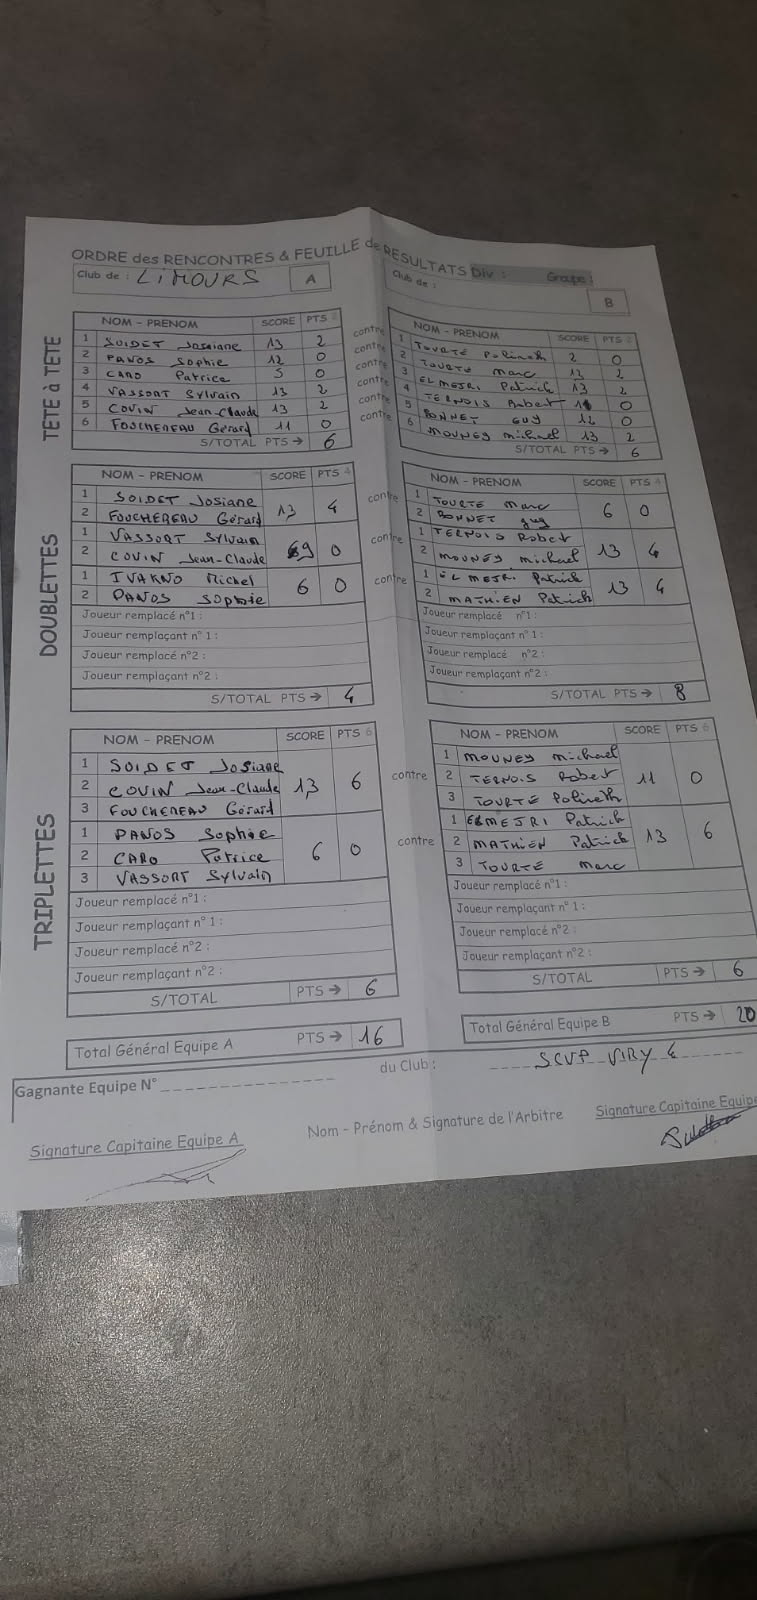 ORDRE des RENCONTRES & FEUILLE de RESULTATS Div : Groupe :
Club de : LIMOURS A
Club de : B
TETE à TETE
NOM - PRENOM SCORE PTS 2
1 SOIDET Josiane 13 2
2 PANOS Sophie 12 0
3 CARO Patrice 5 0
4 VASSORT Sylvain 13 2
5 COVIN Jean-Claude 13 2
6 FOUCHEREAU Gérard 11 0
S/TOTAL PTS → 6
contre
contre
contre
contre
contre
contre
NOM - PRENOM SCORE PTS 2
1 TOURTÉ Polineth 2 0
2 TOURTÉ Marc 13 2
3 ELMEJRI Patrick 13 2
4 TERNOIS Robert 0
5 BONNET GUY 12 0
6 MOUNEY michael 13 2
S/TOTAL PTS → 6
DOUBLETTES
NOM - PRENOM SCORE PTS 4
1 SOIDET Josiane
2 FOUCHEREAU Gérard 13 4
1 VASSORT Sylvain
2 COVIN Jean-Claude 9 0
1 IVARNO Michel
2 PANOS Sophie 6 0
Joueur remplacé n°1 :
Joueur remplaçant n° 1 :
Joueur remplacé n°2 :
Joueur remplaçant n°2 :
S/TOTAL PTS → 4
contre
contre
contre
NOM - PRENOM SCORE PTS 4
1 TOURTÉ Marc
2 BONNET guy 6 0
1 TERNOIS Robert
2 MOUNEY michael 13 4
1 EL MEJRI Patrick
2 MATHIEN Patrick 13 4
Joueur remplacé n°1 :
Joueur remplaçant n°1 :
Joueur remplacé n°2 :
Joueur remplaçant n°2 :
S/TOTAL PTS → 8
TRIPLETTES
NOM - PRENOM SCORE PTS 6
1 SOIDET Josiane
2 COVIN Jean-Claude 13 6
3 FOUCHEREAU Gérard
1 PANOS Sophie
2 CARO Patrice 6 0
3 VASSORT Sylvain
Joueur remplacé n°1 :
Joueur remplaçant n° 1 :
Joueur remplacé n°2 :
Joueur remplaçant n°2 :
S/TOTAL PTS → 6
contre
contre
NOM - PRENOM SCORE PTS 6
1 MOUNEY michael
2 TERNOIS Robert 11 0
3 TOURTÉ Polineth
1 ELMEJRI Patrick
2 MATHIEN Patrick 13 6
3 TOURTÉ Marc
Joueur remplacé n°1 :
Joueur remplaçant n° 1 :
Joueur remplacé n°2 :
Joueur remplaçant n°2 :
S/TOTAL PTS → 6
Total Général Equipe A PTS → 16
Total Général Equipe B PTS → 20
Gagnante Equipe N° du Club : SCVP VIRY 4
Signature Capitaine Equipe A
Nom - Prénom & Signature de l'Arbitre
Signature Capitaine Equipe